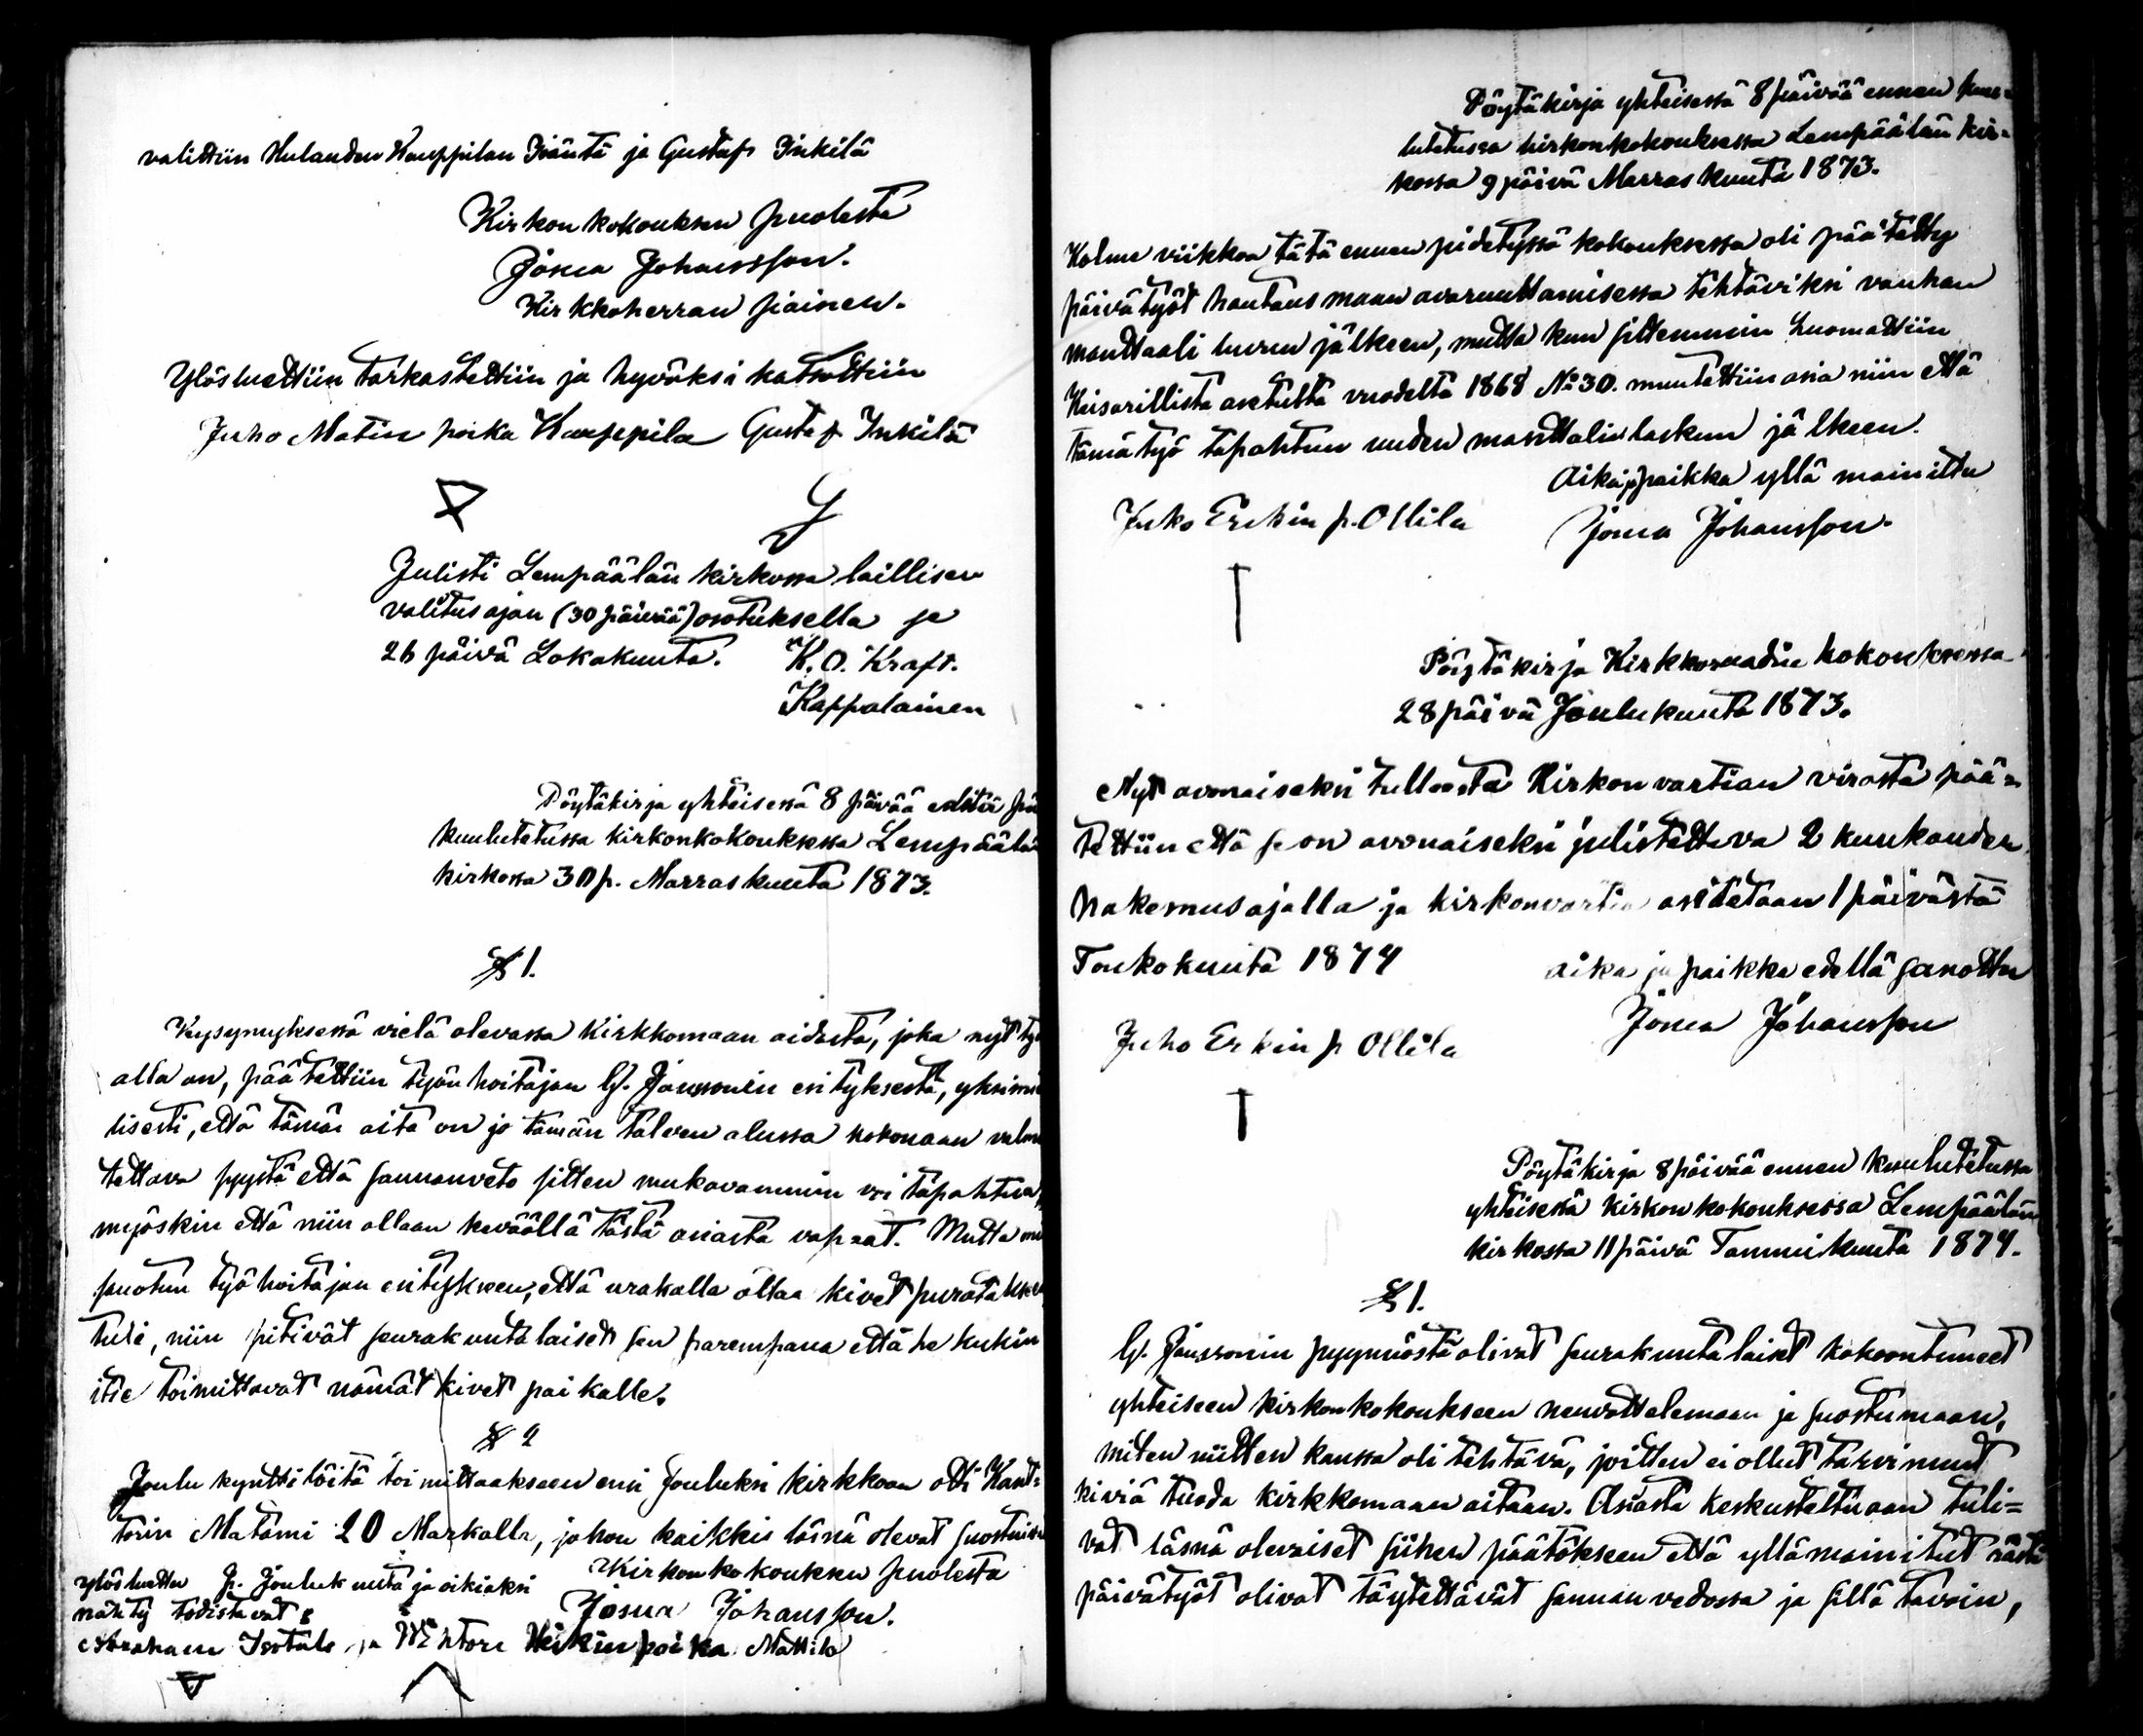 valittiin Hulauden Kauppilan Isäntä ja Gustaf Inkilä
Kirkonkokouksen puolesta
Josua Johansson.
Kirkkoherran siainen.
Ylösluettiin tarkastettiin ja hyväksi katsottiin
Juho Matin poika Kauppila Gustaf Inkilä
Julisti Lempäälän kirkossa laillisen
valitusajan (30 päivää) osotuksella se
26 päivä Lokakuuta. K. O. Kraft.
Kappalainen
Pöytäkirja yhteisessä 8 päivää edeltä
kuulutetussa kirkonkokouksessa Lempäälän
kirkossa 30 p. Marraskuuta 1873.
§ 1.
Kysymyksessä vielä olevassa Kirkkomaan aidasta, joka nyt
alla on, päätettiin työn hoitajan G. Janssonin esityksestä, yksimie
lisesti, että tämä aita on jo tämän talven alussa kokonaan valmis
tettava syystä että sannanveto sitten mukavammin voi tapahtua,
myöskin että niin ollaan keväällä tästä asiasta vapaat. Mutta
suotun työ hoitajan esitykseen, että urakalla ottaa kivet
tuli, niin pitivät seurakuntalaiset sen parempana että he kukin
itse toimittavat nämät kivet paikalle.
§ 2
Joulu kynttilöitä toimittaakseen ensi Jouluksi kirkkoon otti Kant-
torin Matami 20 Markalla, johon kaikki läsnä olevat suostuivat
Kirkonkokouksen puolesta
Josua Johansson.
ylösluettu Jouluk uuta ja oikiaksi
nähty todistavat:
Abraham Isotalo ja Wihtori Heikin poika Mattila
Pöytäkirja yhteisessä 8 päivää ennen kuu-
lutetussa kirkonkokouksessa Lempäälän kir-
kossa 9 päivä Marraskuuta 1873.
Kolme viikkoa tätä ennen pidetyssä kokouksessa oli päätetty
päivätyöt hautausmaan avaruuttamisessa tehtäviksi vanhan
manttaali luvun jälkeen, mutta kun sittemmin huomattiin
Keisarillista asetusta vuodelta 1868 No 30. muutettiin asia niin että
tämä työ tapahtuu uuden manttalin laskun jälkeen.
Aika ja paikka yllä mainittu
Juho Erkin p. Ollila Josua Johansson.
Pöytäkirja Kirkkoraadin kokouksessa
28 päivä Joulukuuta 1873.
Nyt avonaiseksi tulleesta Kirkon vartian virasta pää-
tettiin että se on avonaiseksi julistettava 2 kuukauden
hakemusajalla ja kirkonvartia asetetaan 1 päivästä
Toukokuuta 1874 aika ja paikka edellä sanottu
Josua Johansson
Juho Erkin p Ollila
Pöytäkirja 8 päivää ennen kuulutetussa
yhteisessä kirkon kokouksessa Lempäälän
kirkossa 11 päivä Tammikuuta 1874.
§ 1.
G. Janssonin pyynnöstä olivat seurakuntalaiset kokoontuneet
yhteiseen kirkonkokoukseen neuvottelemaan ja suostumaan,
miten niitten kanssa oli tehtävä, joitten ei ollut tarvinnut
kiviä tuoda kirkkomaan aitaan. Asiasta keskusteltuaan tuli-
vat läsnä olevaiset siihen päätökseen että yllämainitut
päivätyöt olivat täytettävät sannan vedossa ja sillä tavoin,